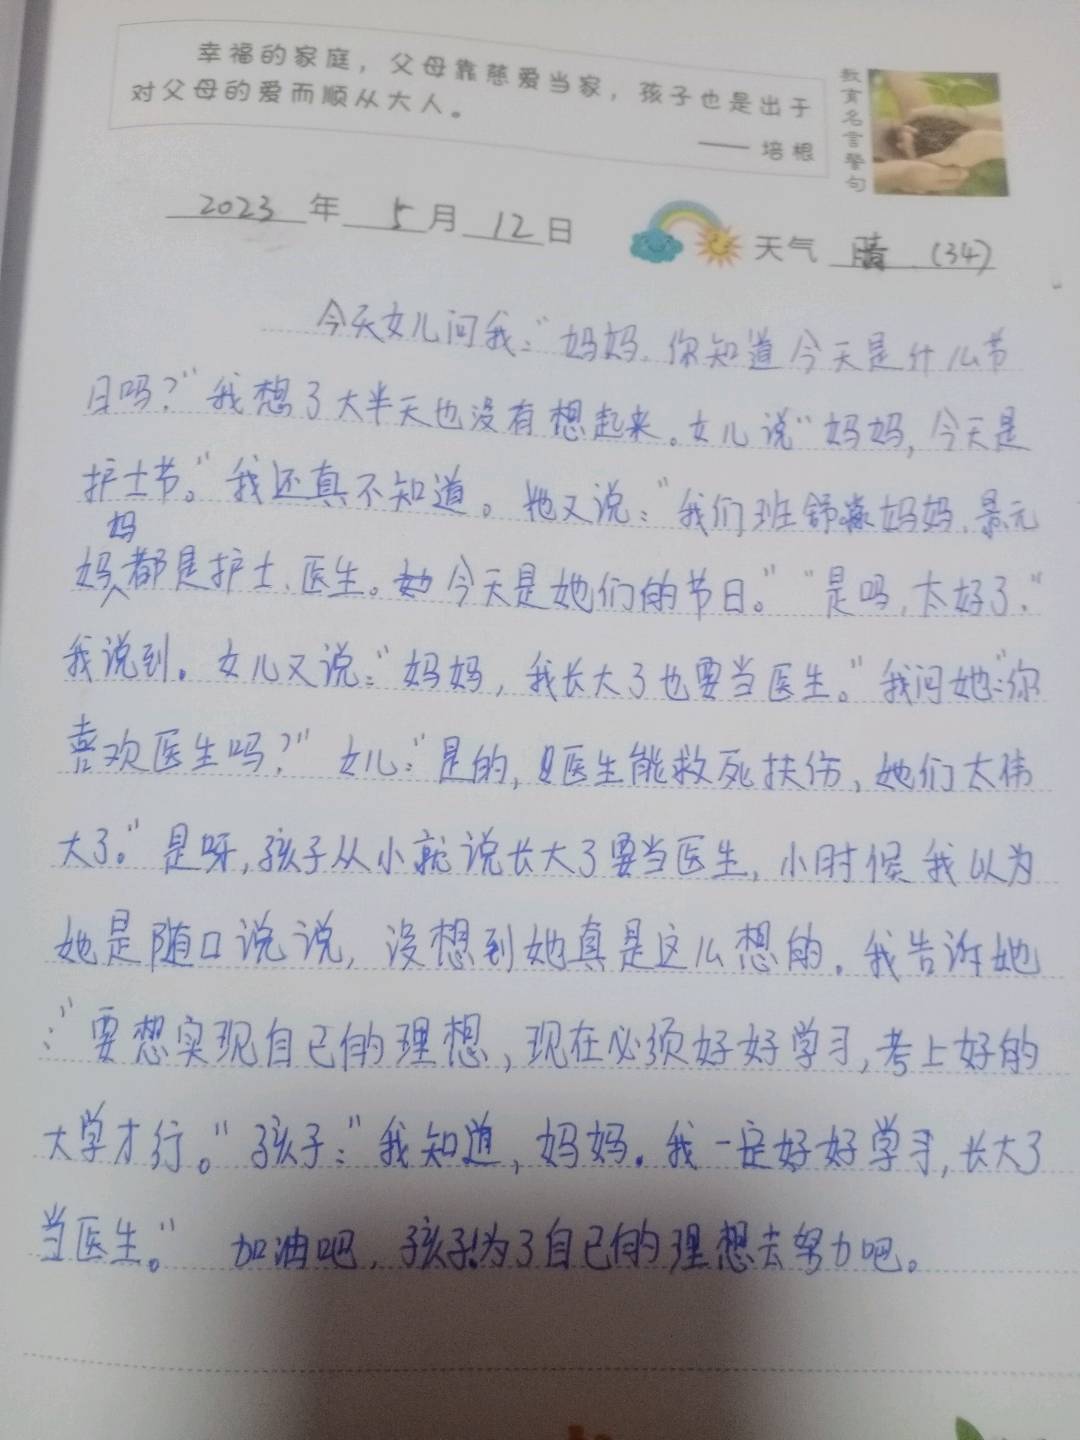 幸福的家庭，父母靠慈爱当家，孩子也是出于
对父母的爱而顺从大人。
—— 培根
教育名言警句
2023 年 5 月 12 日
天气 晴 (34)
今天女儿问我：“妈妈.你知道今天是什么节
日吗？”我想了大半天也没有想起来。女儿说“妈妈，今天是
护士节。”我还真不知道。她又说：“我们班舒淼妈妈.景元
妈妈都是护士、医生。今天是她们的节日。”“是吗，太好了.”
我说到。女儿又说：“妈妈，我长大了也要当医生。”我问她：“你
喜欢医生吗？”女儿：“是的，医生能救死扶伤，她们太伟
大了。”是呀，孩子从小就说长大了要当医生，小时候我以为
她是随口说说，没想到她真是这么想的.我告诉她
：“要想实现自己的理想，现在必须好好学习，考上好的
大学才行。”孩子：“我知道，妈妈.我一定好好学习，长大了
当医生。” 加油吧，孩子！为了自己的理想去努力吧。